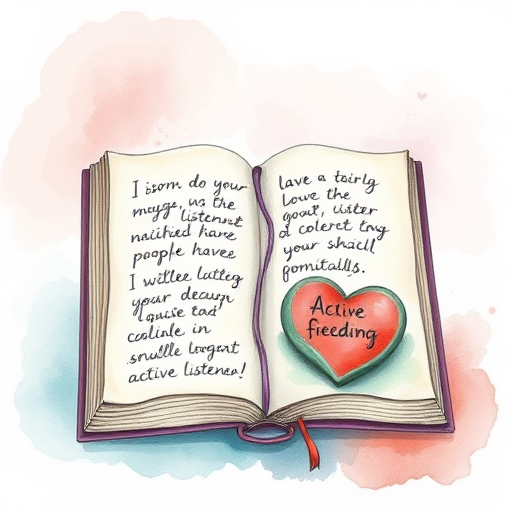 I isorn do your
mayge, us the
listenest
naiched hare
people havee
I willee latteg
your decaur
lquise tad
caslinle in
snuslle lorgont
active listenea!
lave a tairlg
Louve the
goat, uister
a coleret tong
your shall
gomitalls.
Active
fireeding